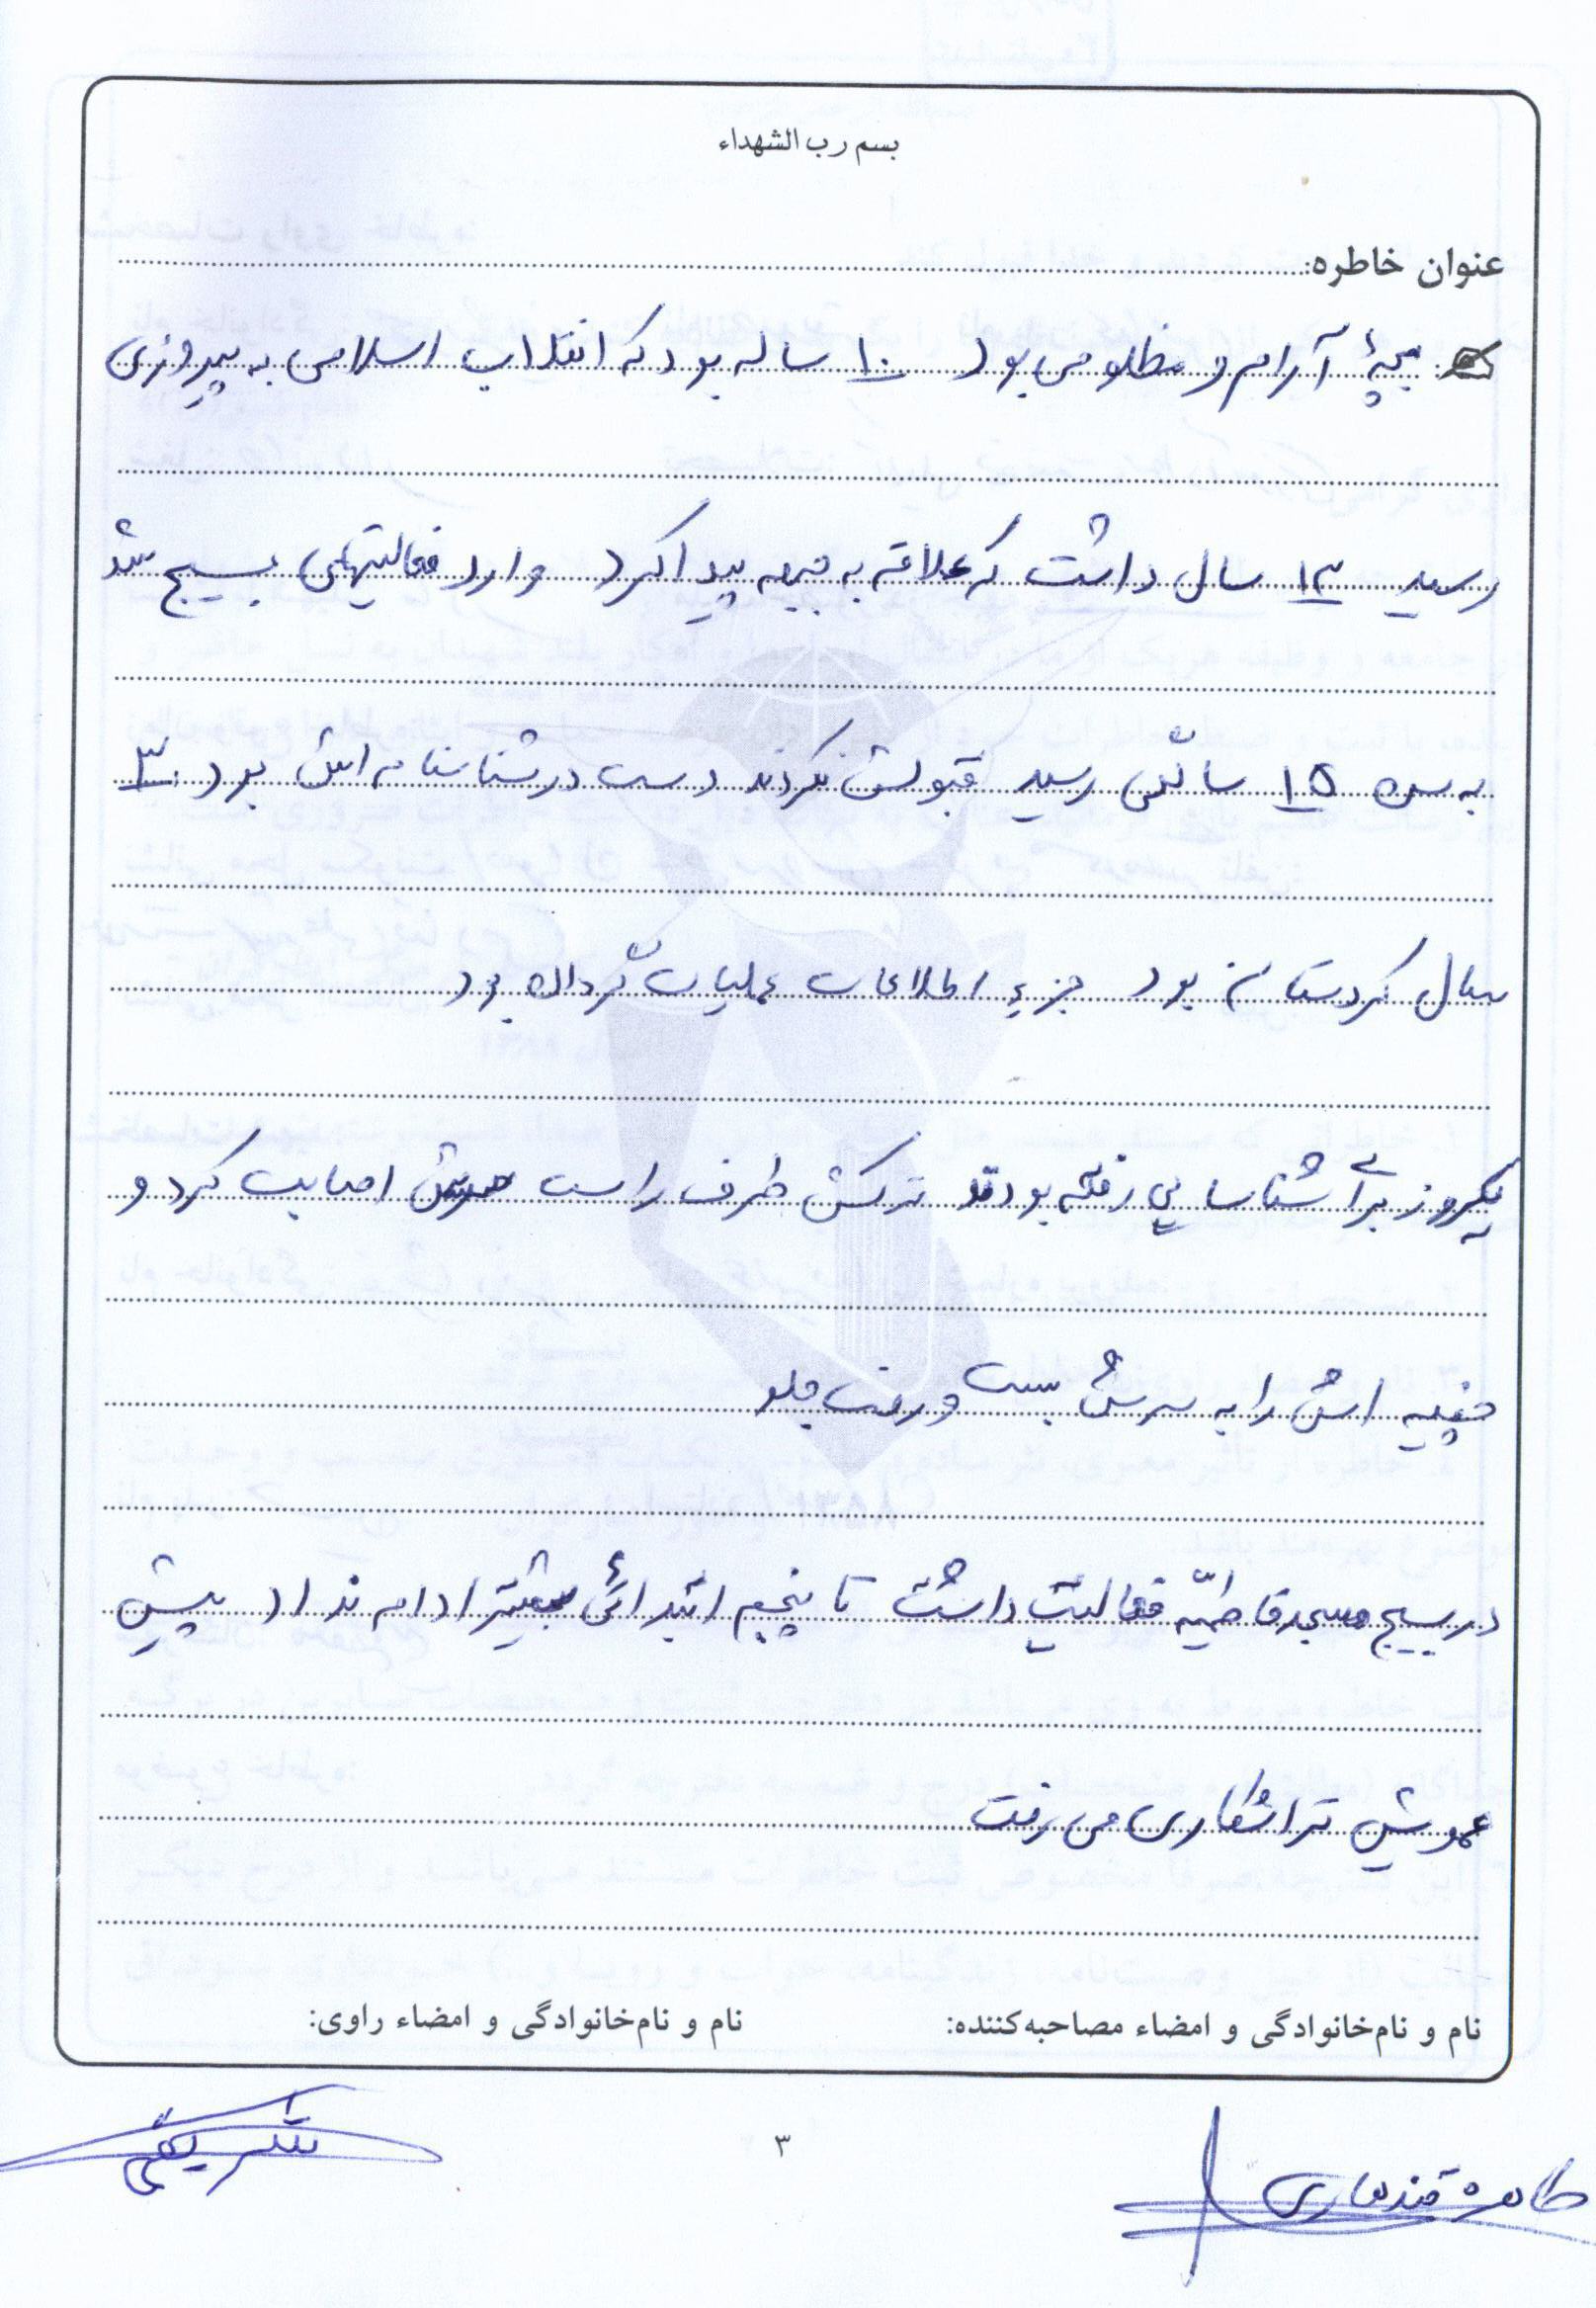 بسم رب الشهداء
عنوان خاطره:
بچهٔ آرام و مظلومی بود ۱۰ ساله بود که انقلاب اسلامی به پیروزی
رسید ۱۳ سال داشت که علاقه به جبهه پیدا کرد وارد فعالیتهای بسیج شد
به سن ۱۵ سالگی رسید قبولش نکردند دست در شناسنامه اش برد ۳
سال کردستان بود جزء اطلاعات عملیات گردان بود
یکروز برای شناسایی رفته بودند ترکش طرف راست سرش اصابت کرد و
چفیه اش را به سرش بست و رفت جلو
در بسیج مسجد فاطمیّه فعالیت داشت تا پنجم ابتدائی بیشتر ادامه نداد پیش
عمویش تراشکاری می رفت
نام و نام‌خانوادگی و امضاء مصاحبه‌کننده: نام و نام‌خانوادگی و امضاء راوی:
۳
طاهره قندهاری